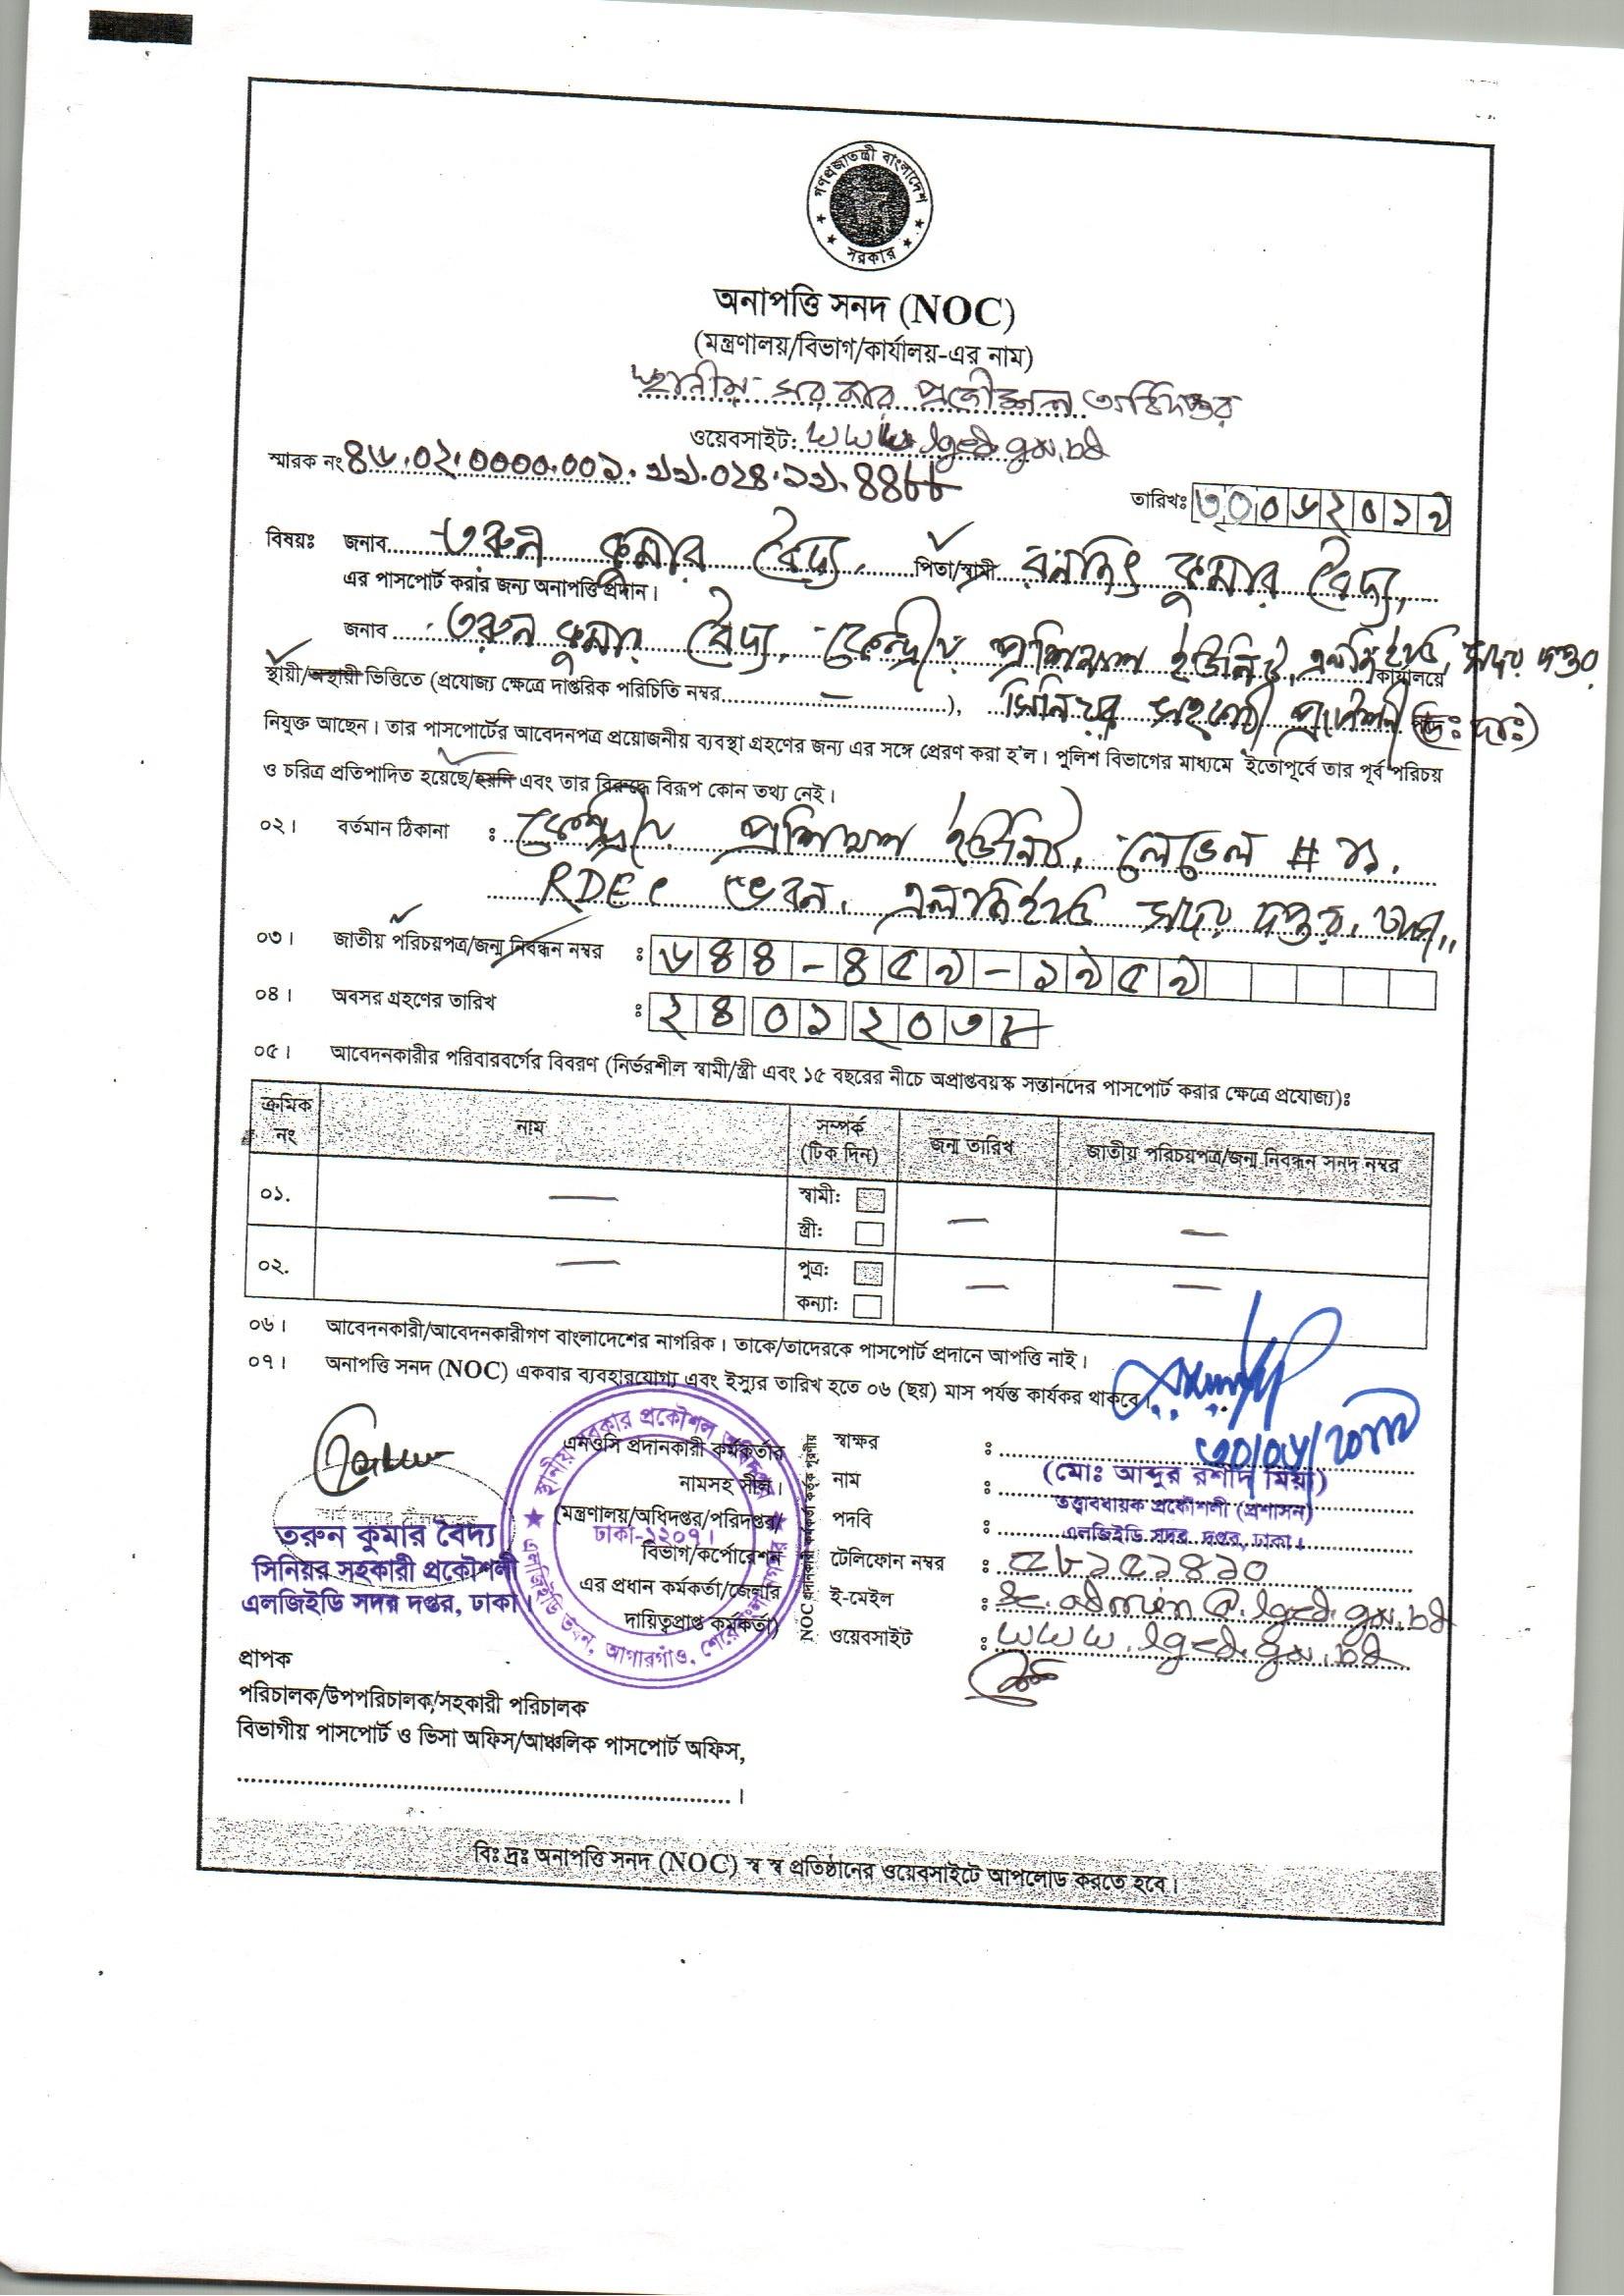 গণপ্রজাতন্ত্রী বাংলাদেশ
সরকার
অনাপত্তি সনদ (NOC)
(মন্ত্রণালয়/বিভাগ/কার্যালয়-এর নাম)
স্থানীয় সরকার প্রকৌশল অধিদপ্তর
ওয়েবসাইট: www.lged.gov.bd
স্মারক নং ৪৬.০২.০০০০.০০১.
তারিখঃ ৩০০৬২০১৯
বিষয়ঃ জনাব তরুন কুমার বৈদ্য, পিতা/স্বামী রনজিৎ কুমার বৈদ্য,
এর পাসপোর্ট করার জন্য অনাপত্তি প্রদান।
জনাব তরুন কুমার বৈদ্য, কেন্দ্রীয় প্রশিক্ষণ ইউনিট, এলজিইডি, সদর দপ্তর কার্যালয়ে
স্থায়ী/অস্থায়ী ভিত্তিতে (প্রযোজ্য ক্ষেত্রে দাপ্তরিক পরিচিতি নম্বর — ), সিনিয়র সহকারী প্রকৌশলী
নিযুক্ত আছেন। তার পাসপোর্টের আবেদনপত্র প্রয়োজনীয় ব্যবস্থা গ্রহণের জন্য এর সঙ্গে প্রেরণ করা হ'ল। পুলিশ বিভাগের মাধ্যমে ইতোপূর্বে তার পূর্ব পরিচয়
ও চরিত্র প্রতিপাদিত হয়েছে/হয়নি এবং তার বিরুদ্ধে বিরূপ কোন তথ্য নেই।
০২। বর্তমান ঠিকানা : কেন্দ্রীয় প্রশিক্ষণ ইউনিট, লেভেল # ১১,
RDEC ভবন, এলজিইডি সদর দপ্তর, ঢাকা,,
০৩। জাতীয় পরিচয়পত্র/জন্ম নিবন্ধন নম্বর : ৬৪৪-৪৫৯-১৯৫৯
০৪। অবসর গ্রহণের তারিখ : ২৪০১২০৩৮
০৫। আবেদনকারীর পরিবারবর্গের বিবরণ (নির্ভরশীল স্বামী/স্ত্রী এবং ১৫ বছরের নীচে অপ্রাপ্তবয়স্ক সন্তানদের পাসপোর্ট করার ক্ষেত্রে প্রযোজ্য)ঃ
ক্রমিক নং নাম সম্পর্ক (টিক দিন) জন্ম তারিখ জাতীয় পরিচয়পত্র/জন্ম নিবন্ধন সনদ নম্বর
০১. — স্বামী: — —
স্ত্রী:
০২. — পুত্র: — —
কন্যা:
০৬। আবেদনকারী/আবেদনকারীগণ বাংলাদেশের নাগরিক। তাকে/তাদেরকে পাসপোর্ট প্রদানে আপত্তি নাই।
০৭। অনাপত্তি সনদ (NOC) একবার ব্যবহারযোগ্য এবং ইস্যুর তারিখ হতে ০৬ (ছয়) মাস পর্যন্ত কার্যকর থাকবে।
৩০/০৬/২০১৯
তরুন কুমার বৈদ্য
সিনিয়র সহকারী প্রকৌশলী
এলজিইডি সদর দপ্তর, ঢাকা।
স্থানীয় সরকার প্রকৌশল অধিদপ্তর
ঢাকা-১২০৭।
এলজিইডি ভবন, আগারগাঁও, শেরেবাংলা নগর
এনওসি প্রদানকারী কর্মকর্তার
নামসহ সীল।
(মন্ত্রণালয়/অধিদপ্তর/পরিদপ্তর/
বিভাগ/কর্পোরেশন
এর প্রধান কর্মকর্তা/জেলার
দায়িত্বপ্রাপ্ত কর্মকর্তা)
NOC প্রদানকারী কর্মকর্তা কর্তৃক পূরণীয়
স্বাক্ষর :
নাম : (মোঃ আব্দুর রশীদ মিয়া)
পদবি : তত্ত্বাবধায়ক প্রকৌশলী (প্রশাসন)
এলজিইডি সদর দপ্তর, ঢাকা।
টেলিফোন নম্বর : ৫৮১৫১৪১০
ই-মেইল : se.admin@lged.gov.bd
ওয়েবসাইট : www.lged.gov.bd
প্রাপক
পরিচালক/উপপরিচালক/সহকারী পরিচালক
বিভাগীয় পাসপোর্ট ও ভিসা অফিস/আঞ্চলিক পাসপোর্ট অফিস,
বিঃ দ্রঃ অনাপত্তি সনদ (NOC) স্ব স্ব প্রতিষ্ঠানের ওয়েবসাইটে আপলোড করতে হবে।